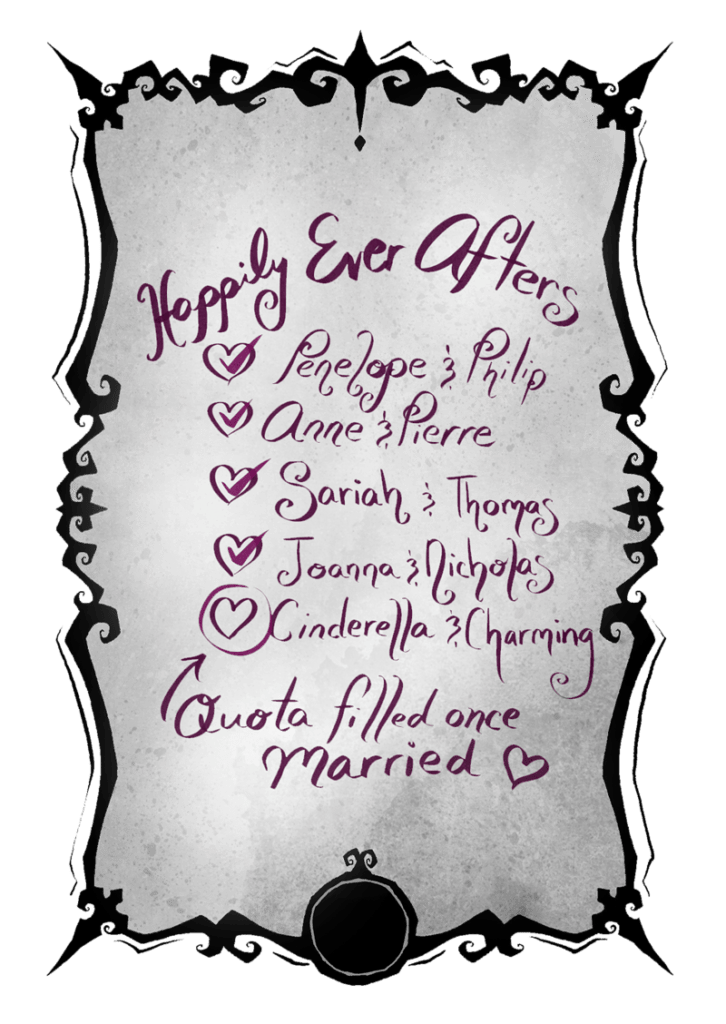 Happily Ever Afters
Penelope & Philip
Anne & Pierre
Sariah & Thomas
Joanna & Nicholas
Cinderella & Charming
Quota filled once
married